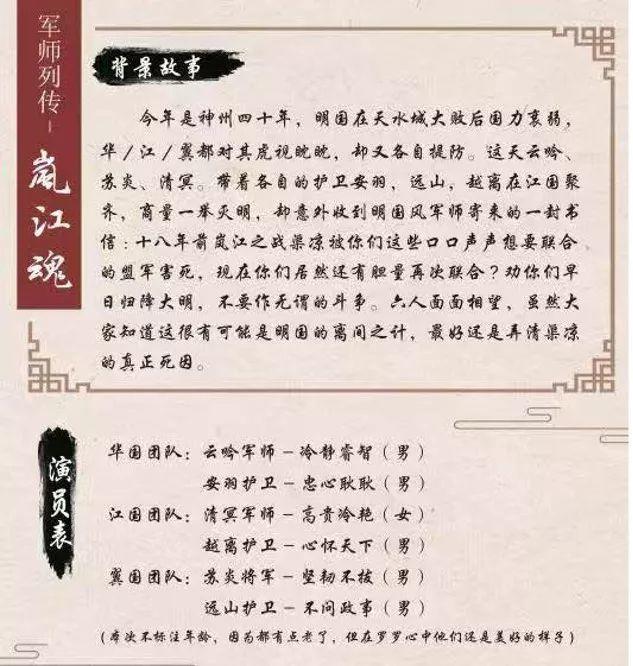 军师列传-
岚江魂
背景故事
今年是神州四十年，明国在天水城大败后国力衰弱，
华/江/翼都对其虎视眈眈，却又各自提防。这天云吟、
苏炎、清冥。带着各自的护卫安羽，远山，越离在江国聚
齐，商量一举灭明，却意外收到明国风军师寄来的一封书
信：十八年前岚江之战渠凉被你们这些口口声声想要联合
的盟军害死，现在你们居然还有胆量再次联合？劝你们早
日归降大明，不要作无谓的斗争。六人面面相望，虽然大
家知道这很有可能是明国的离间之计，最好还是弄清渠凉
的真正死因。
演员表
华国团队：云吟军师-冷静睿智（男）
安羽护卫-忠心耿耿（男）
江国团队：清冥军师-高贵冷艳（女）
越离护卫-心怀天下（男）
翼国团队：苏炎将军-坚韧不拔（男）
远山护卫-不问政事（男）
（本次不标注年龄，因为都有点老了，但在罗罗心中他们还是美好的样子）